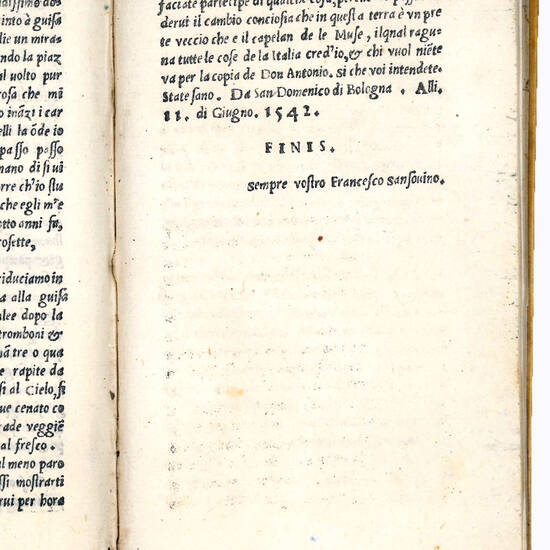 idissimo dos
into è guisa
lie un miras
ndo la piaz
al uolto pur
rosa che mi
o inãzi i car
elli la õde io
passo passo
mano di si ui
rre ch'io stu
che egli m'e
otto anni fu,
rosette,
riduciamo in
a alla guisa
lee dopo la
tromboni &
nã tre o qua
e rapite da
si al Cielo, si
ue cenato co
ade veggiẽ
al fresco.
al meno paro
ssi mostrarti
rui per hora
faciate partecipe di qualche cosa,
derui il cambio conciosia che in questa terra è vn pre
te veccio che e il capelan de le Muse, ilqnal ragu
na tutte le cose de la Italia cred'io, & chi vuol niẽte
va per la copia de Don Antonio. si che voi intendete.
State sano. Da San Domenico di Bologna. Alli.
11. di Giugno. 1542.
FINIS.
Sempre vostro Francesco Sansouino.